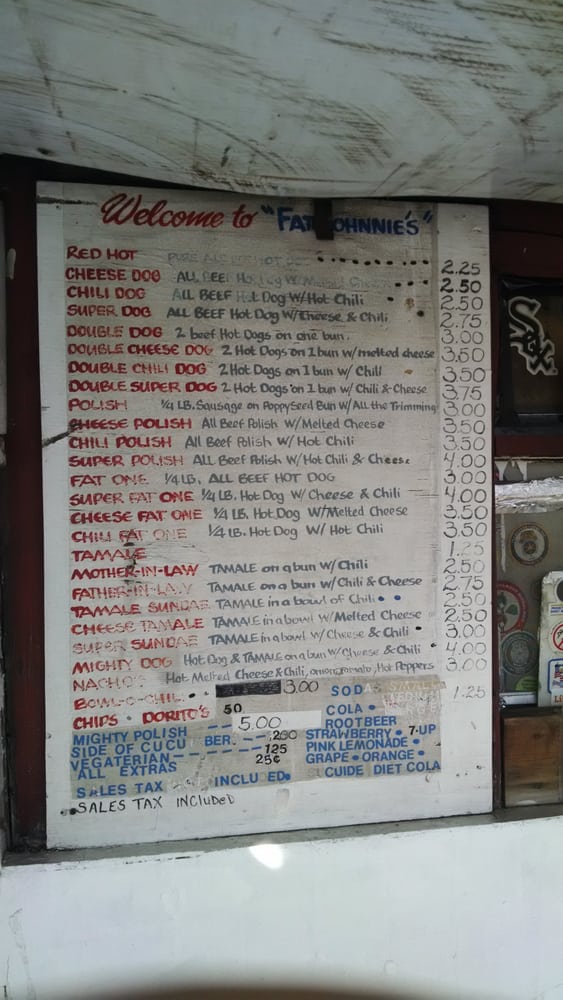 Welcome to "FAT JOHNNIE'S"
RED HOT PURE ALL BEEF HOT DOG 2.25
CHEESE DOG ALL BEEF Hot Dog W/Melted Cheese 2.50
CHILI DOG ALL BEEF Hot Dog W/Hot Chili 2.50
SUPER DOG ALL BEEF Hot Dog W/Cheese & Chili 2.75
DOUBLE DOG 2 beef Hot Dogs on one bun. 3.00
DOUBLE CHEESE DOG 2 Hot Dogs on 1 bun w/melted cheese 3.50
DOUBLE CHILI DOG 2 Hot Dogs on 1 bun w/ Chili 3.50
DOUBLE SUPER DOG 2 Hot Dogs on 1 bun w/ Chili & Cheese 3.75
POLISH 1/4 LB. Sausage on PoppySeed Bun W/All the Trimming 3.00
CHEESE POLISH All Beef Polish W/Melted Cheese 3.50
CHILI POLISH All Beef Polish W/Hot Chili 3.50
SUPER POLISH ALL Beef Polish W/Hot Chili & Cheese 4.00
FAT ONE 1/4 LB. ALL BEEF HOT DOG 3.00
SUPER FAT ONE 1/4 LB. Hot Dog W/ Cheese & Chili 4.00
CHEESE FAT ONE 1/4 LB. Hot Dog W/Melted Cheese 3.50
CHILI FAT ONE 1/4 LB. Hot Dog W/ Hot Chili 3.50
TAMALE 1.25
MOTHER-IN-LAW TAMALE on a bun w/ Chili 2.50
FATHER-IN-LAW TAMALE on a bun w/ Chili & Cheese 2.75
TAMALE SUNDAE TAMALE in a bowl of Chili 2.50
CHEESE TAMALE TAMALE in a bowl w/ Melted Cheese 2.50
SUPER SUNDAE TAMALE in a bowl w/ Cheese & Chili 3.00
MIGHTY DOG Hot Dog & TAMALE on a bun w/ Cheese & Chili 4.00
NACHO'S Hot Melted Cheese & Chili, onion, tomato, Hot Peppers 3.00
BOWL-O-CHIL 3.00
CHIPS • DORITO'S 50
MIGHTY POLISH 5.00
SIDE OF CUCU BER. 200
VEGATERIAN 125
ALL EXTRAS 25¢
SALES TAX INCLUDED
SODAS SMALL
1.25
COLA •
ROOTBEER
STRAWBERRY • 7-UP
PINK LEMONADE •
GRAPE • ORANGE •
CUIDE DIET COLA
SALES TAX INCLUDED
Sox